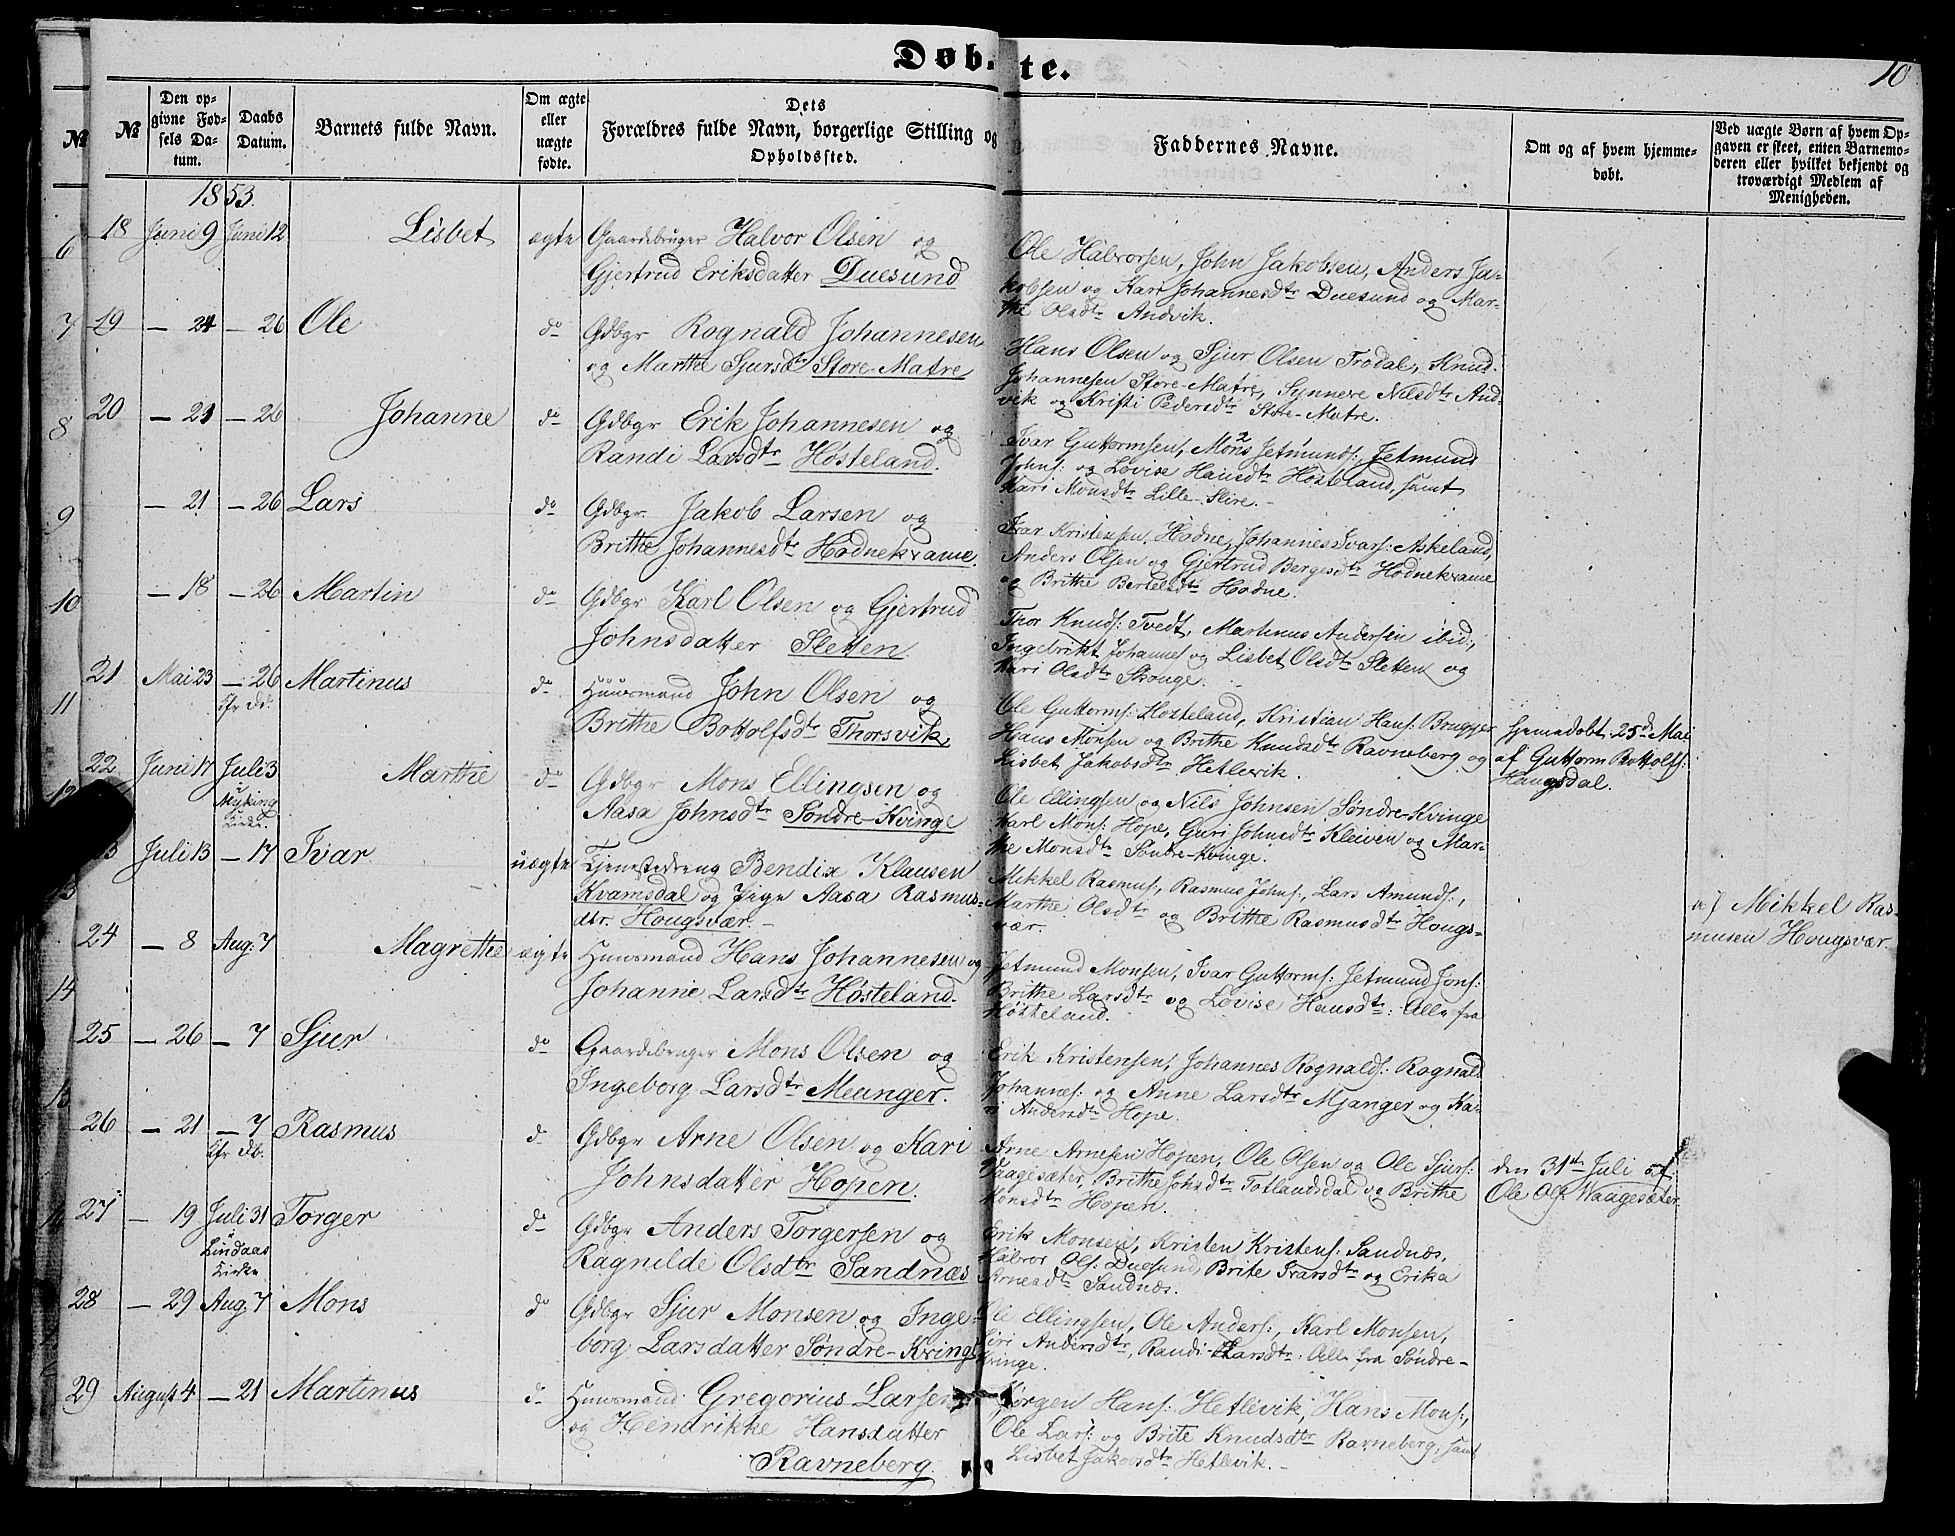 Døb- te.
10
№
№
Den op-
givne Fød-
sels Da-
tum.
Daabs
Datum.
Barnets fulde Navn.
Om ægte
eller
uægte
fødte.
Dets
Forældres fulde Navn, borgerlige Stilling og
Opholdssted.
Faddernes Navne.
Om og af hvem hjemme-
døbt.
Ved uægte Børn af hvem Op-
gaven er skeet, enten Barnemo-
deren eller hvilket bekjendt og
troværdigt Medlem af
Menigheden.
1853.
18 Juni 9 Juni 12 Lisbet ægte Gaardsbruger Halvor Olsen og
Gjertrud Eriksdatter Duesund
Ole Halvorsen, John Jakobsen, Anders Ja-
kobsen og Kari Johannesdtr Duesund og Mar-
the Olsdtr Andvik.
19 — 24 — 26 Ole do Gdbgr Rognald Johannesen
og Marthe Sjursdtr Store-Matre
Hans Olsen og Sjur Olsen Trodal, Knud
Johannesen Store-Matre, Synneve Nilsdtr And-
vik og Kristi Pedersdtr Store-Matre.
20 — 21 — 26 Johanne do Gdbgr Erik Johannesen og
Randi Larsdtr Høsteland.
Ivar Guttormsen, Mons Jetmunds: Jetmund
Johns: og Lovise Hansdtr Hosteland, samt
Kari Monsdtr Lille-Slire.
— 21 — 26 Lars do Gdbgr. Jakob Larsen og
Brithe Johannesdtr Hodnekvame.
Ivar Kristensen, Hodne, Johannes Ivars: Askeland,
Anders Olsen og Gjertrud Bergesdtr Hodnekvame
og Brithe Bertelsdtr Hodne.
— 18 — 26 Martin do Gdbgr Karl Olsen og Gjertrud
Johnsdatter Sletten
Thor Knuds: Tvedt, Martinus Andersen ibid:,
Ingebrikt Johannes og Lisbet Olsdtr Sletten og
Kari Olsdtr Skouge.
21 Mai 23 — 26 Martinus do Huusmand John Olsen og
Brithe Bottolfsdtr Thorsvik,
Ole Guttorms: Hosteland, Kristian Hans: Brugger
Hans Monsen og Brithe Knudsdtr Ravneberg og
Lisbet Jakobsdtr Hetlevik.
Hjemedøbt 25de Mai
af Guttorm Bottolfs:
Haugsdal.
22 Juni 17 Juli 3 Marthe do Gdbgr Mons Ellingsen og
Myking
Kirke.
Aasa Johnsdtr Søndre-Kvinge
Ole Ellingsen og Nils Johnsen Søndre-Kvinge
Karl Mons: Hope, Guri Johnsdtr Kleiven og Mar-
the Monsdtr Søndre-Kvinge.
Juli 13 — 17 Ivar uægte Tjenestedreng Bendix Klausen
Kvamsdal og Pige Aasa Rasmus-
dtr. Hougsvær.
Mikkel Rasmus:, Rasmus Johns:, Lars Amunds:,
Marthe Olsdtr og Brithe Rasmusdtr Hougs-
vær.
Mikkel Ras-
musen Hougsvær
24 — 8 Aug. 7 Magrethe ægte Huusmand Hans Johannesen og
Johanne Larsdtr Høsteland.
Jetmund Monsen, Ivar Guttorms: Jetmund Jons:
Brithe Larsdtr og Lovise Hansdtr: Alle fra
Høsteland.
25 — 26 — 7 Sjur do Gaardsbruger Mons Olsen og
Ingeborg Larsdtr Meanger.
Erik Kristensen, Johannes Rognalds: Rognald
Johannes: og Anne Larsdtr Mjanger og Ka-
ri Andersdtr Hope.
26 — 21 — 7 Rasmus do Gdbgr Arne Olsen og Kari
Johnsdatter Hopen.
Arne Arnesen Hopen, Ole Olsen og Ole Sjurs:
Vaagesæter, Brithe Johsdtr Totlandsdal og Brithe
Monsdtr Hopen.
den 31te Juli af
Ole Ols Waagesæter
27 — 19 Juli 31 Torger do Gdbgr Anders Torgersen og
Lindaas
Kirke
Ragnilde Olsdtr Sandnæs
Erik Monsen, Kristen Kristens: Sandnæs,
Halvor Ols: Duesund, Brite Ivarsdtr og Erika
Arnesdtr Sandnæs.
28 — 29 Aug. 7 Mons do Gdbgr Sjur Monsen og Inge-
borg Larsdatter Søndre-Kvinge
Ole Ellingsen, Ole Anders:, Karl Monsen,
Siri Andersdtr, Randi Larsdtr: Alle fra Søndre-
Kvinge.
29 August 4 — 21 Martinus do Huusmand Gregorius Larsen
og Hendrikke Hansdatter
Ravneberg
Jørgen Hans: Hetlevik, Hans Mons:,
Ole Lars: og Brite Knudsdtr Ravneberg, samt
Lisbet Jakobsdtr Hetlevik.